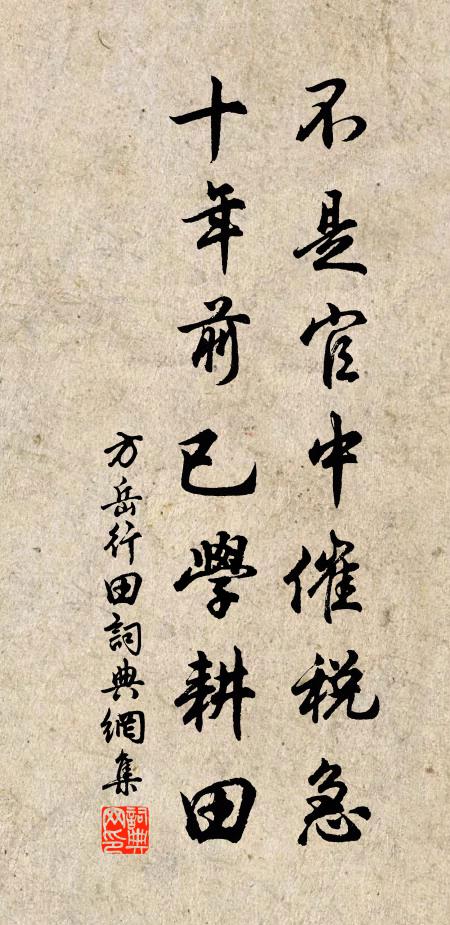 不是官中催税急
十年前已學耕田
方岳行田詞典網集
詞典网印